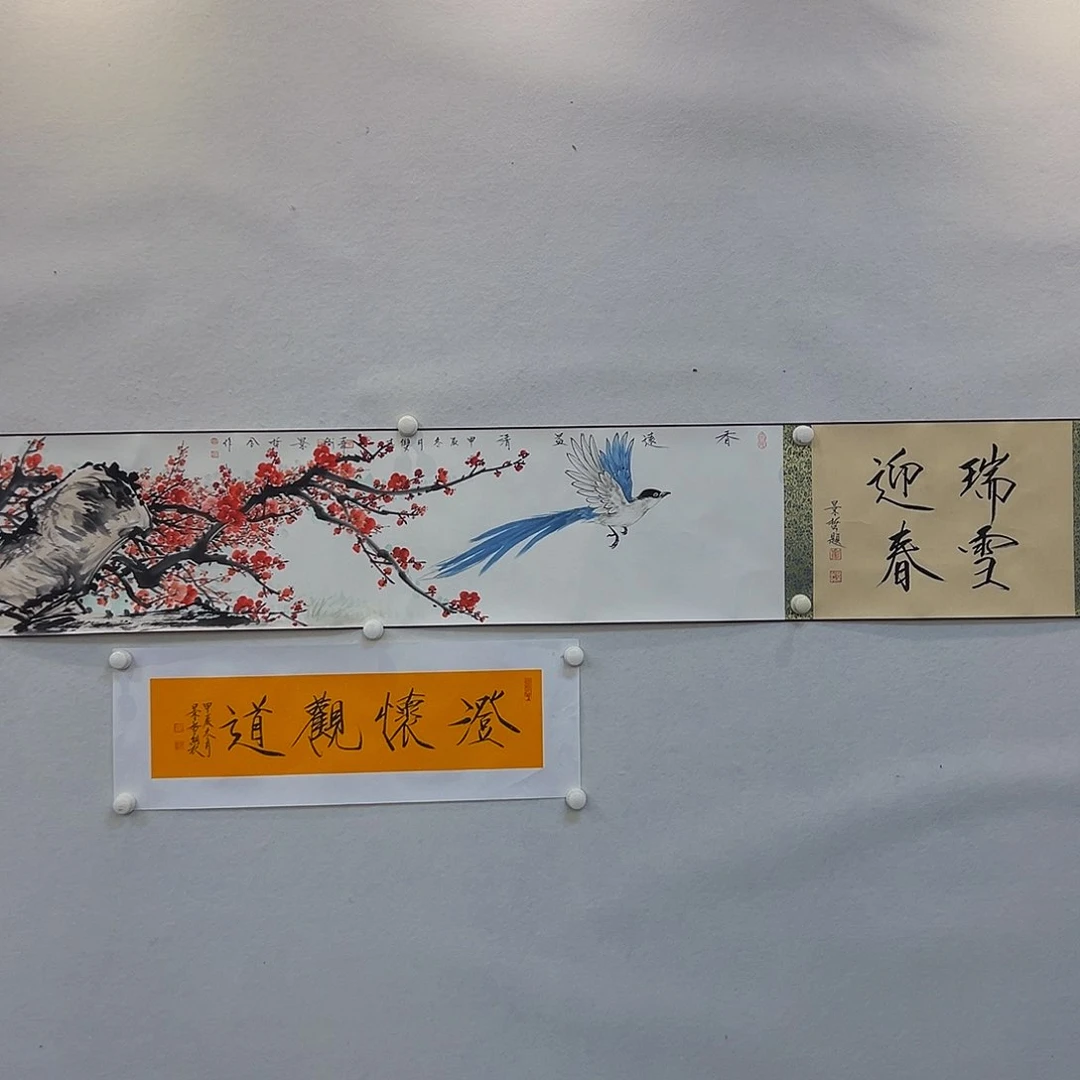 瑞雪
迎春
景哲題
香遠益清
甲辰冬月
景哲合作
澄懷觀道
甲辰
景哲